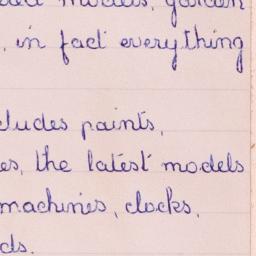 models, garden
, in fact everything
cludes paints,
es, the latest models
machines, clocks,
ds.